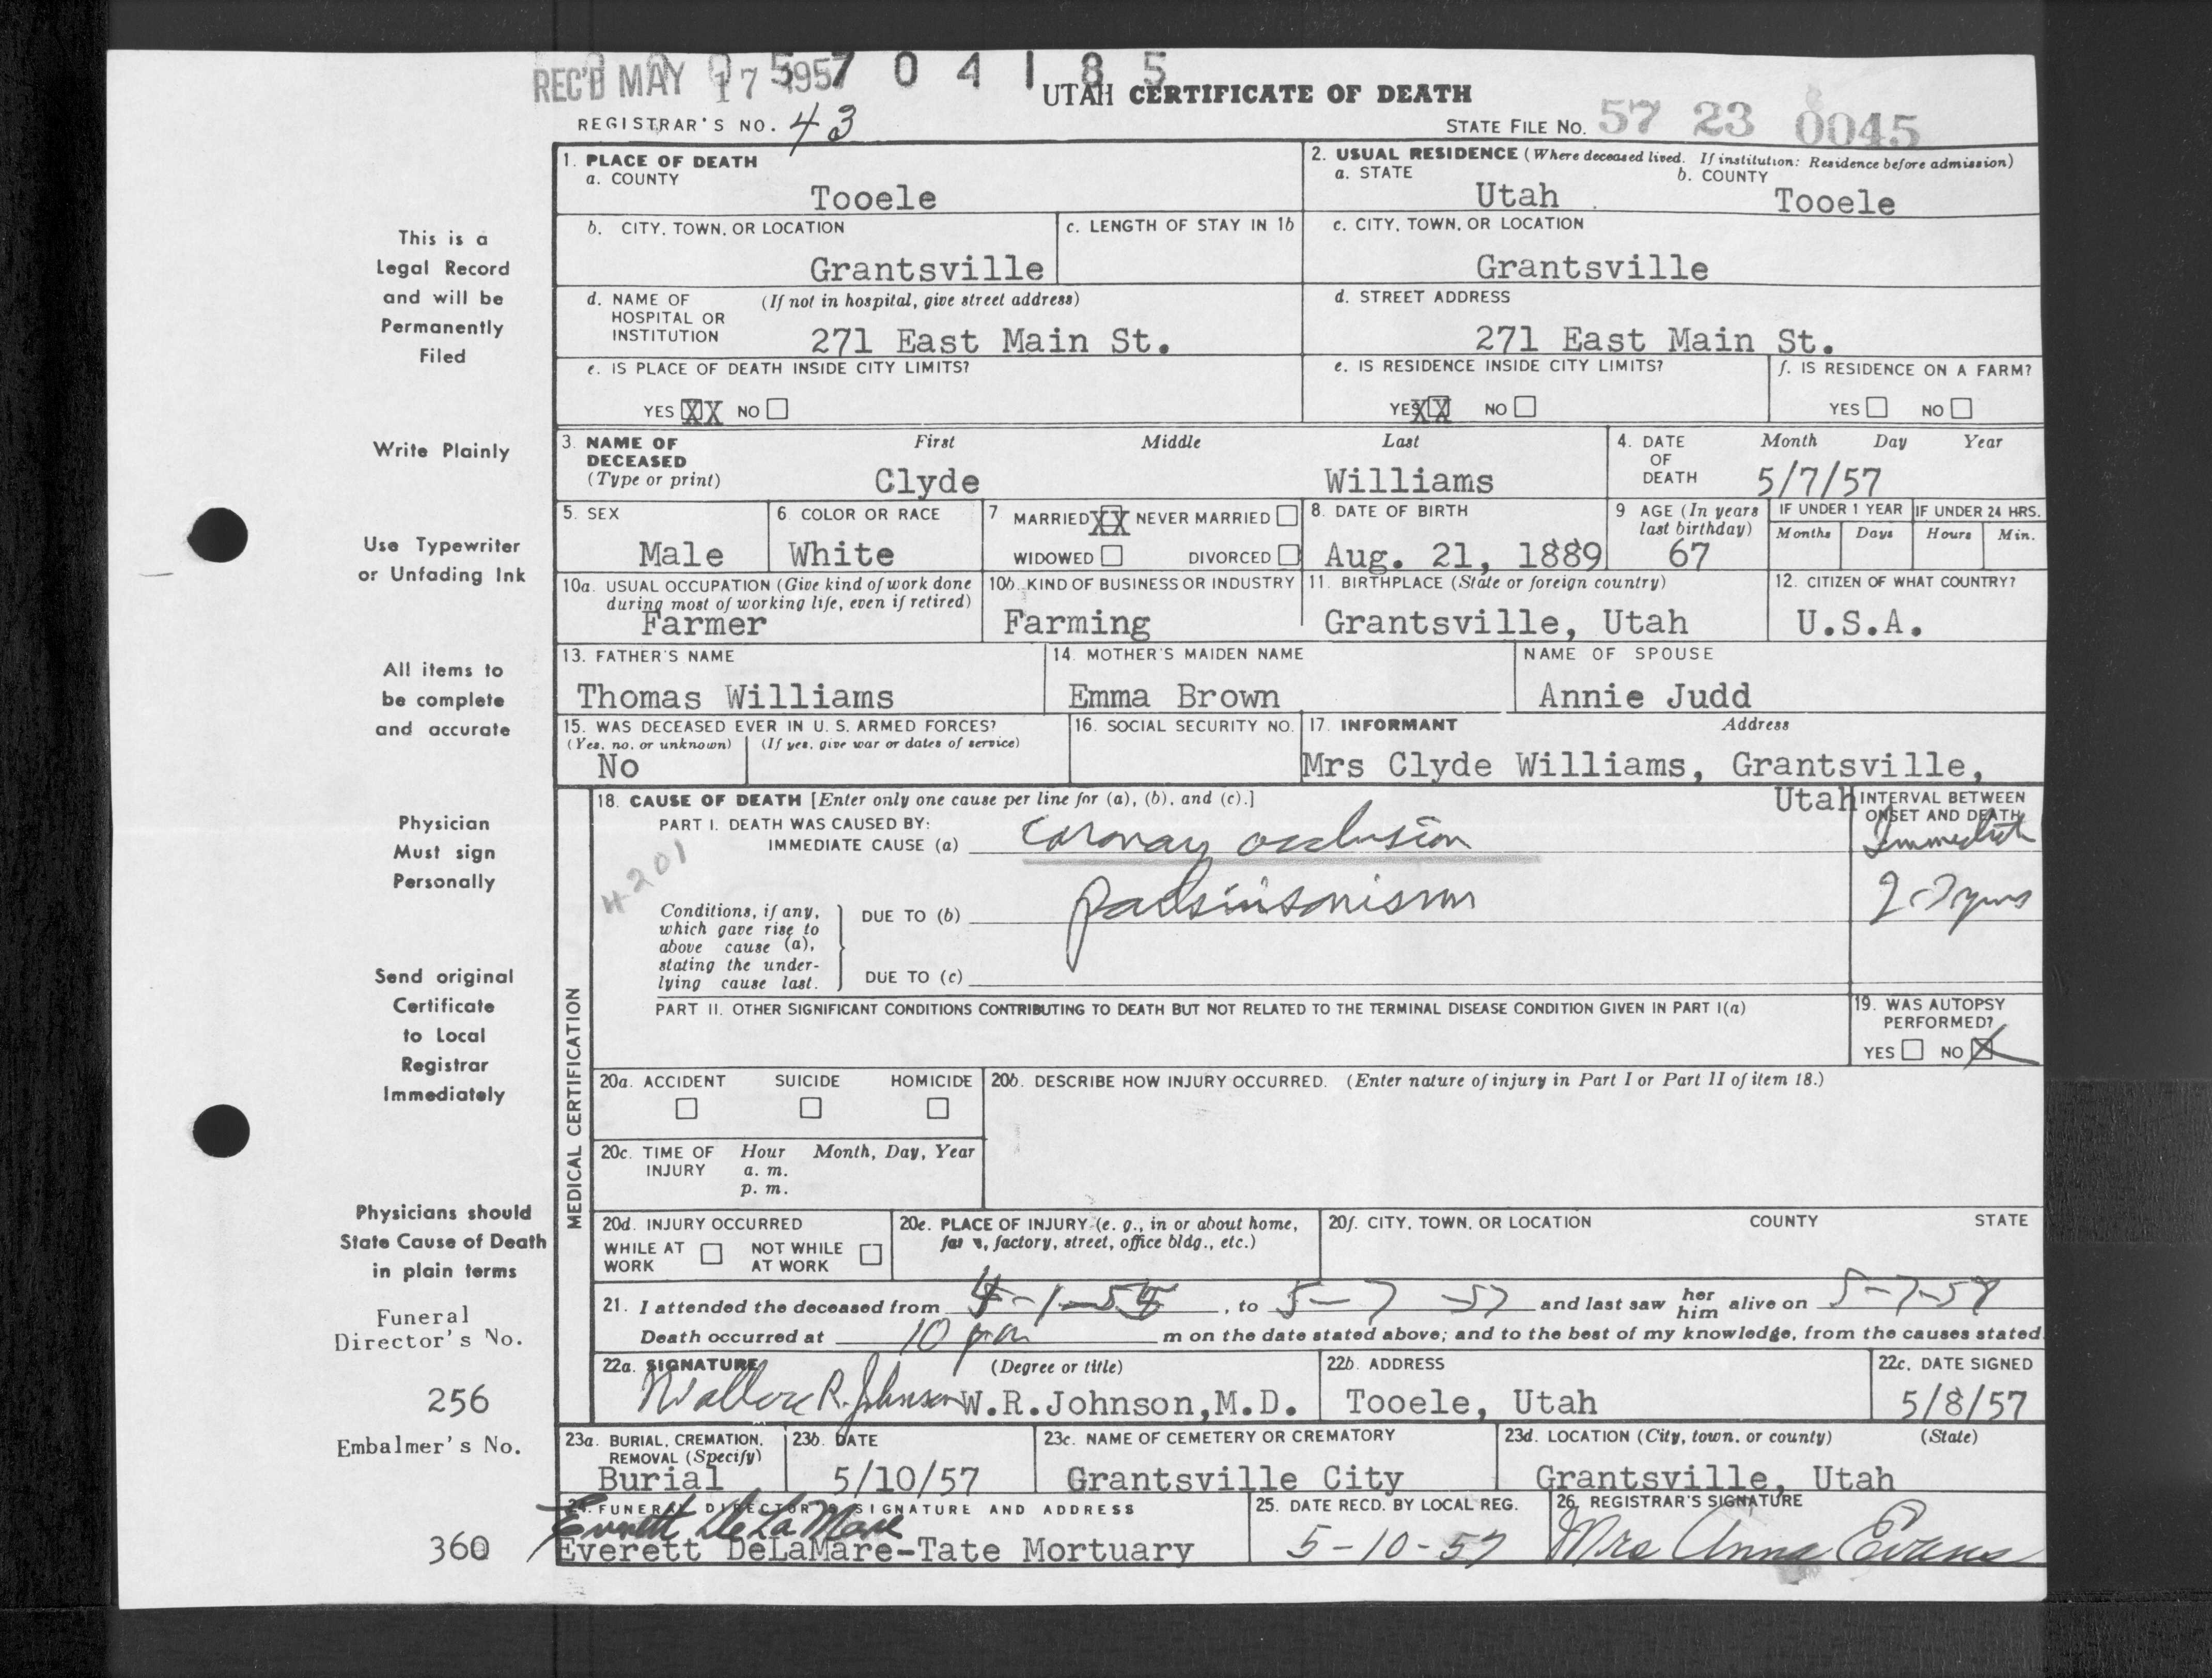 REC'D MAY 17 1957 0 4 1 8 5
UTAH CERTIFICATE OF DEATH
REGISTRAR'S NO. 43
STATE FILE NO. 57 23 0045
1. PLACE OF DEATH
a. COUNTY
Tooele
2. USUAL RESIDENCE (Where deceased lived. If institution: Residence before admission)
a. STATE
Utah
b. COUNTY
Tooele
b. CITY, TOWN, OR LOCATION
Grantsville
c. LENGTH OF STAY IN 1b
c. CITY, TOWN, OR LOCATION
Grantsville
d. NAME OF HOSPITAL OR INSTITUTION
(If not in hospital, give street address)
271 East Main St.
d. STREET ADDRESS
271 East Main St.
e. IS PLACE OF DEATH INSIDE CITY LIMITS?
YES XX NO
e. IS RESIDENCE INSIDE CITY LIMITS?
YES XX NO
f. IS RESIDENCE ON A FARM?
YES NO
3. NAME OF DECEASED (Type or print)
First Middle Last
Clyde Williams
4. DATE OF DEATH
Month Day Year
5/7/57
5. SEX
Male
6. COLOR OR RACE
White
7 MARRIED XX NEVER MARRIED
WIDOWED DIVORCED
8. DATE OF BIRTH
Aug. 21, 1889
9 AGE (In years last birthday)
67
IF UNDER 1 YEAR
Months Days
IF UNDER 24 HRS.
Hours Min.
10a. USUAL OCCUPATION (Give kind of work done during most of working life, even if retired)
Farmer
10b. KIND OF BUSINESS OR INDUSTRY
Farming
11. BIRTHPLACE (State or foreign country)
Grantsville, Utah
12. CITIZEN OF WHAT COUNTRY?
U.S.A.
13. FATHER'S NAME
Thomas Williams
14. MOTHER'S MAIDEN NAME
Emma Brown
NAME OF SPOUSE
Annie Judd
15. WAS DECEASED EVER IN U. S. ARMED FORCES?
(Yes, no, or unknown) (If yes, give war or dates of service)
No
16. SOCIAL SECURITY NO.
17. INFORMANT Address
Mrs Clyde Williams, Grantsville,
Utah
MEDICAL CERTIFICATION
18. CAUSE OF DEATH [Enter only one cause per line for (a), (b), and (c).]
PART I. DEATH WAS CAUSED BY:
IMMEDIATE CAUSE (a) Coronary occlusion
4201
INTERVAL BETWEEN ONSET AND DEATH
Immediate
Conditions, if any, which gave rise to above cause (a), stating the underlying cause last.
DUE TO (b) parkinsonism
DUE TO (c)
PART II. OTHER SIGNIFICANT CONDITIONS CONTRIBUTING TO DEATH BUT NOT RELATED TO THE TERMINAL DISEASE CONDITION GIVEN IN PART I(a)
19. WAS AUTOPSY PERFORMED?
YES NO X
20a. ACCIDENT SUICIDE HOMICIDE
20b. DESCRIBE HOW INJURY OCCURRED. (Enter nature of injury in Part I or Part II of item 18.)
20c. TIME OF INJURY
Hour Month, Day, Year
a. m.
p. m.
20d. INJURY OCCURRED
WHILE AT WORK NOT WHILE AT WORK
20e. PLACE OF INJURY (e. g., in or about home, farm, factory, street, office bldg., etc.)
20f. CITY, TOWN, OR LOCATION COUNTY STATE
21. I attended the deceased from , to 5-7 57 and last saw her him alive on
Death occurred at 10 pm m on the date stated above; and to the best of my knowledge, from the causes stated.
22a. SIGNATURE (Degree or title)
R. Johnson W.R.Johnson,M.D.
22b. ADDRESS
Tooele, Utah
22c. DATE SIGNED
5/8/57
23a. BURIAL, CREMATION, REMOVAL (Specify)
Burial
23b. DATE
5/10/57
23c. NAME OF CEMETERY OR CREMATORY
Grantsville City
23d. LOCATION (City, town, or county) (State)
Grantsville, Utah
24. FUNERAL DIRECTOR'S SIGNATURE AND ADDRESS
Everett DeLaMare
Everett DeLaMare-Tate Mortuary
25. DATE RECD. BY LOCAL REG.
5-10-57
26. REGISTRAR'S SIGNATURE
Mrs Anna Evans
This is a
Legal Record
and will be
Permanently
Filed
Write Plainly
Use Typewriter
or Unfading Ink
All items to
be complete
and accurate
Physician
Must sign
Personally
Send original
Certificate
to Local
Registrar
Immediately
Physicians should
State Cause of Death
in plain terms
Funeral
Director's No.
256
Embalmer's No.
360